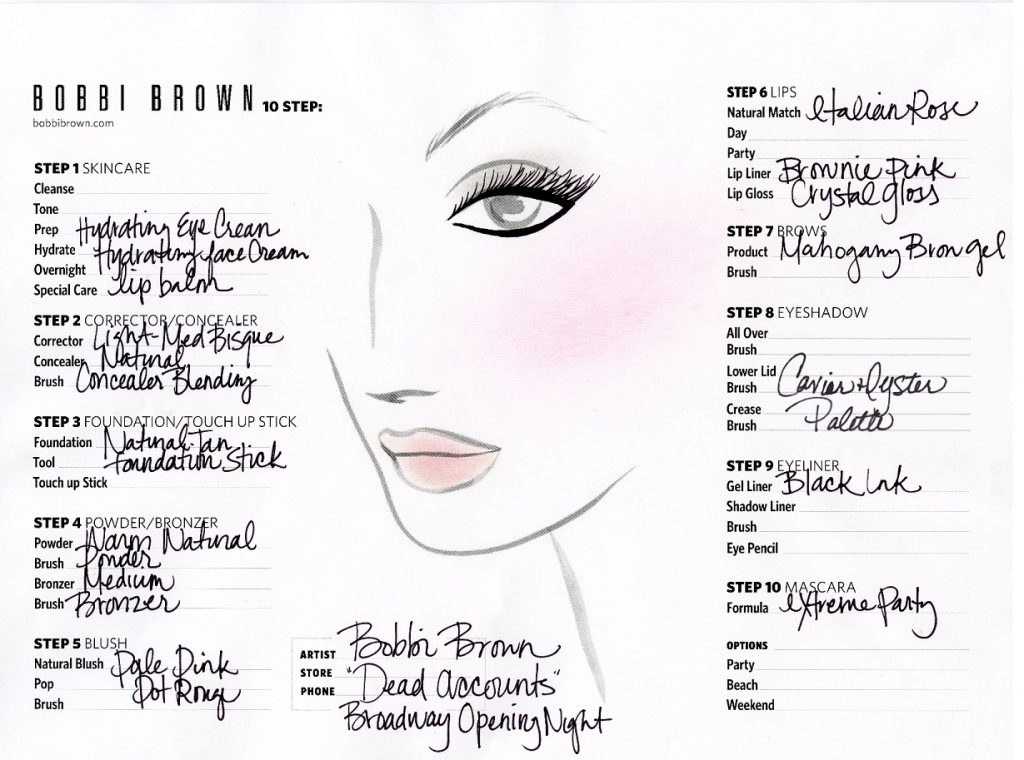 BOBBI BROWN 10 STEP:
bobbibrown.com
STEP 1 SKINCARE
Cleanse
Tone
Prep Hydrating Eye Cream
Hydrate Hydrating face Cream
Overnight
Special Care lip balm
STEP 2 CORRECTOR/CONCEALER
Corrector Light-Med Bisque
Concealer Natural
Brush Concealer Blending
STEP 3 FOUNDATION/TOUCH UP STICK
Foundation Natural Tan
Tool foundation Stick
Touch up Stick
STEP 4 POWDER/BRONZER
Powder Warm Natural
Brush Powder
Bronzer Medium
Brush Bronzer
STEP 5 BLUSH
Natural Blush Pale Pink
Pop Pot Rouge
Brush
ARTIST Bobbi Brown
STORE "Dead Accounts"
PHONE
Broadway Opening Night
STEP 6 LIPS
Natural Match Italian Rose
Day
Party
Lip Liner Brownie Pink
Lip Gloss Crystal gloss
STEP 7 BROWS
Product Mahogany Brow gel
Brush
STEP 8 EYESHADOW
All Over
Brush
Lower Lid
Brush Caviar + Oyster
Crease
Brush Palette
STEP 9 EYELINER
Gel Liner Black Ink
Shadow Liner
Brush
Eye Pencil
STEP 10 MASCARA
Formula extreme Party
OPTIONS
Party
Beach
Weekend